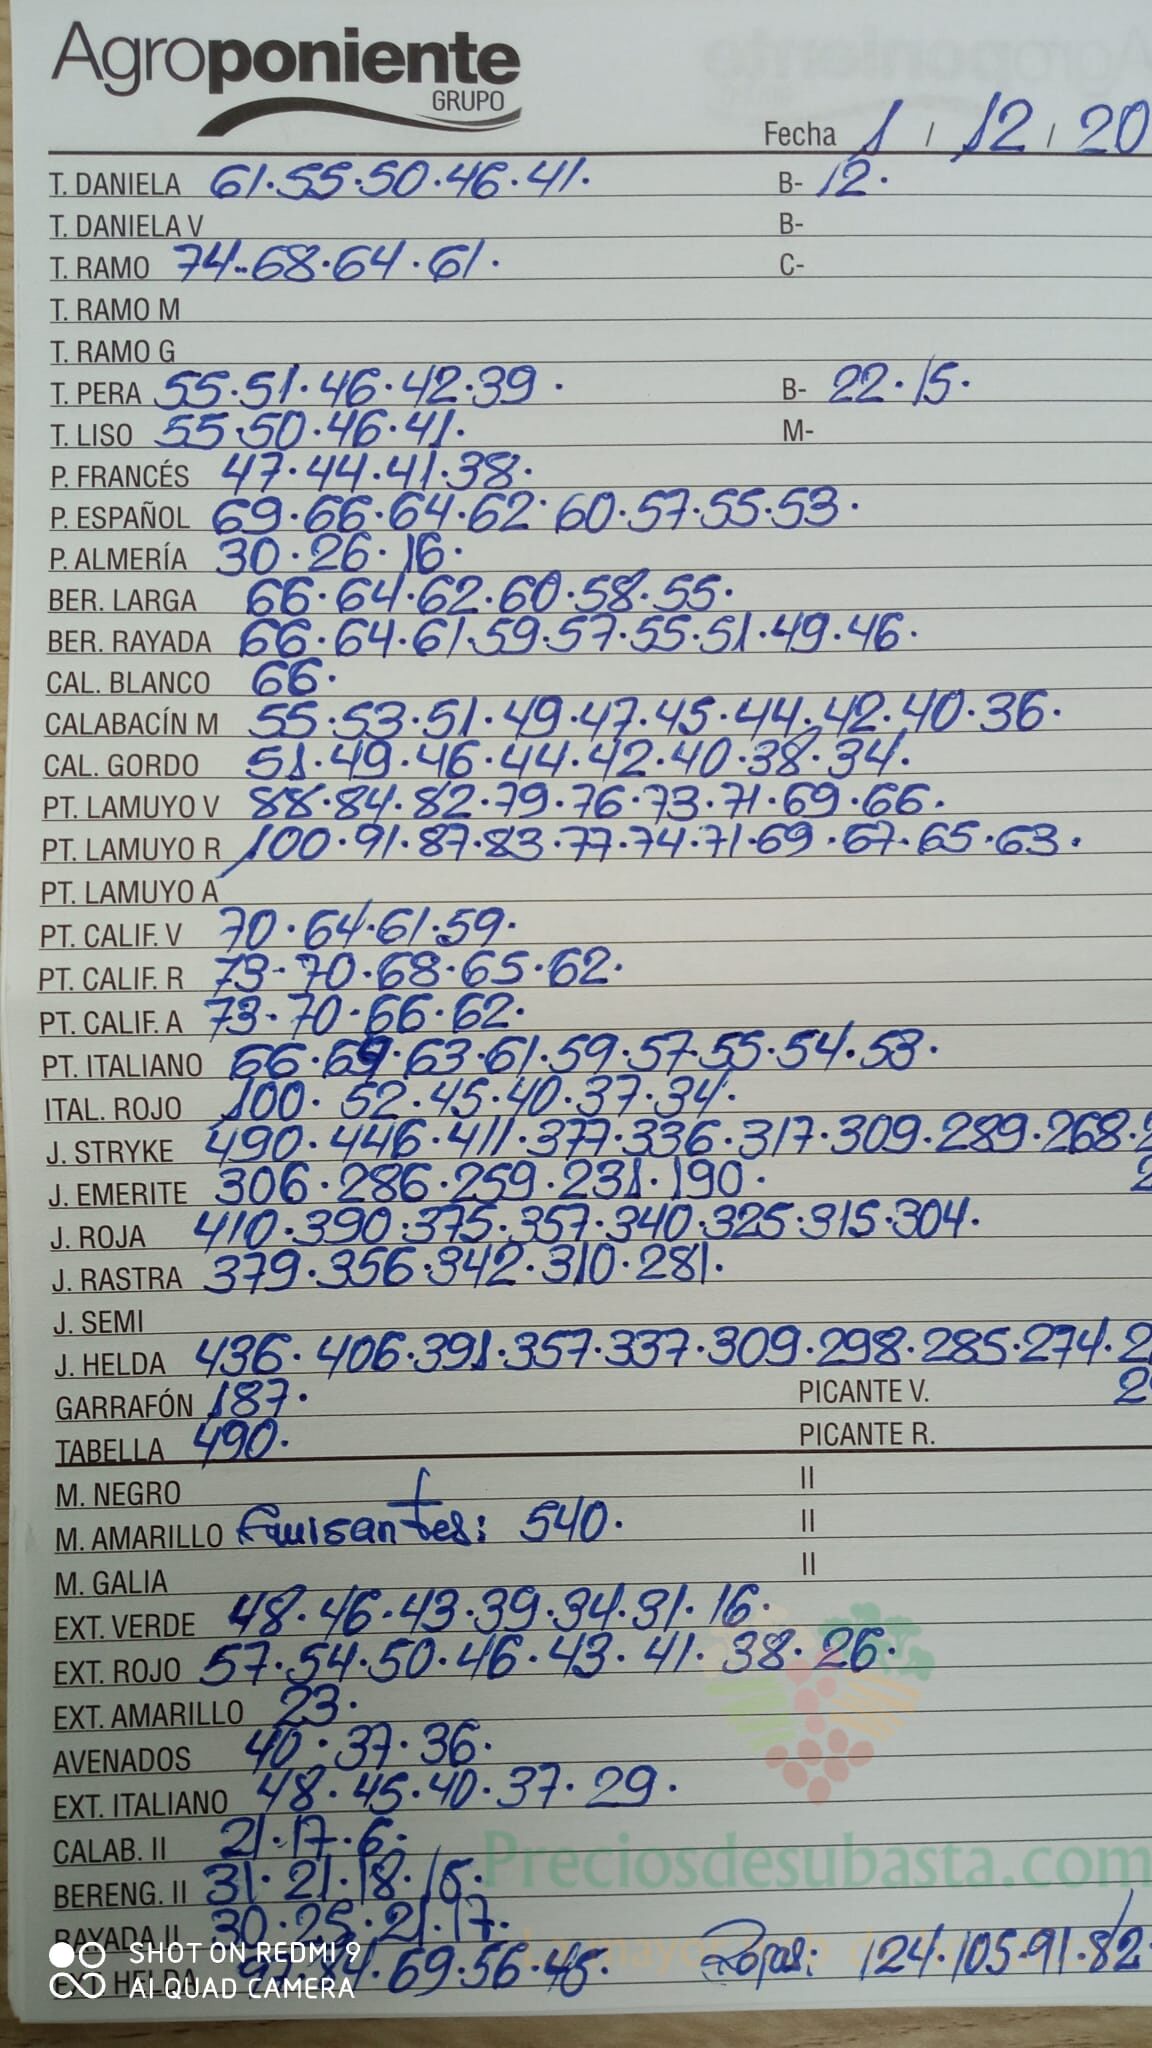 Agroponiente
GRUPO
Fecha 1 / 12 / 20
T. DANIELA 61.55.50.46.41. B- 12.
T. DANIELA V B-
T. RAMO 74..68.64.61. C-
T. RAMO M
T. RAMO G
T. PERA 55.51.46.42.39. B- 22.15.
T. LISO 55.50.46.41. M-
P. FRANCÉS 47.44.41.38.
P. ESPAÑOL 69.66.64.62.60.57.55.53.
P. ALMERÍA 30.26.16.
BER. LARGA 66.64.62.60.58.55.
BER. RAYADA 66.64.61.59.57.55.51.49.46.
CAL. BLANCO 66.
CALABACÍN M 55.53.51.49.47.45.44.42.40.36.
CAL. GORDO 51.49.46.44.42.40.38.34.
PT. LAMUYO V 88.84.82.79.76.73.71.69.66.
PT. LAMUYO R 100.91.87.83.77.74.71.69.67.65.63.
PT. LAMUYO A
PT. CALIF. V 70.64.61.59.
PT. CALIF. R 73-70.68.65.62.
PT. CALIF. A 73-70.66.62.
PT. ITALIANO 66. 63.61.59.57.55.54.53.
ITAL. ROJO 100. 52.45.40.37.34.
J. STRYKE 490.446.411.377.336.317.309.289.268.2
J. EMERITE 306.286.259.231.190. 2
J. ROJA 410.390.375.357.340.325.315.304.
J. RASTRA 379.356.342.310.281.
J. SEMI
J. HELDA 436.406.391.357.337.309.298.285.274.2
GARRAFÓN 187. PICANTE V. 2
TABELLA 490. PICANTE R.
M. NEGRO II
M. AMARILLO Guisantes: 540. II
M. GALIA II
EXT. VERDE 48.46.43.39.34.31.16.
EXT. ROJO 57.54.50.46.43.41.38.26.
EXT. AMARILLO 23.
AVENADOS 40.37.36.
EXT. ITALIANO 48.45.40.37.29.
CALAB. II 21.17.6.
Preciosdesubasta.com
BERENG. II 31.21.18.15.
RAYADA II 30.25.21.17.
EXT HELDA 84.69.56.45. Rojas: 124.105.91.82
SHOT ON REDMI 9
AI QUAD CAMERA